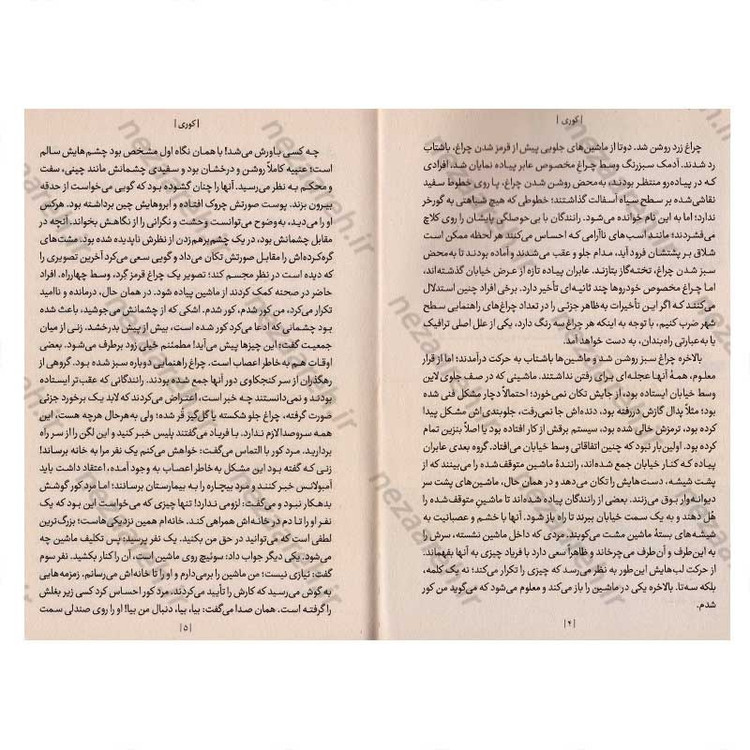 | کوری |
چراغ زرد روشن شد. دوتا از ماشین‌های جلویی پیش از قرمز شدن چراغ، باشتاب
رد شدند. آدمک سبزرنگ وسط چراغ مخصوص عابر پیاده نمایان شد. افرادی
که در پیاده‌رو منتظر بودند، به‌محض روشن شدن چراغ، پا روی خطوط سفید
نقاشی‌شده بر سطح سیاه آسفالت گذاشتند؛ خطوطی که هیچ شباهتی به گورخر
ندارد؛ اما به این نام خوانده می‌شود. رانندگان با بی‌حوصلگی پایشان را روی کلاچ
می‌فشردند؛ مانند اسب‌های ناآرامی که احساس می‌کنند هر لحظه ممکن است
شلاق بر پشتشان فرود آید، مدام جلو و عقب می‌شدند و آماده بودند تا به‌محض
سبز شدن چراغ، تخته‌گاز بتازند. عابران پیاده تازه از عرض خیابان گذشته‌اند،
اما چراغ مخصوص خودروها چند ثانیه‌ای تأخیر دارد. برخی افراد چنین استدلال
می‌کنند که اگر این تأخیرات به‌ظاهر جزئی را در تعداد چراغ‌های راهنمایی سطح
شهر ضرب کنیم، با توجه به اینکه هر چراغ سه رنگ دارد، یکی از علل اصلی ترافیک
یا به عبارتی راه‌بندان، به دست خواهد آمد.
بالاخره چراغ سبز روشن شد و ماشین‌ها باشتاب به حرکت درآمدند؛ اما از قرار
معلوم، همهٔ آنها عجله‌ای برای رفتن نداشتند. ماشینی که در صف جلوی لاین
وسط خیابان ایستاده بود، از جایش تکان نمی‌خورد؛ احتمالاً دچار مشکل فنی شده
بود؛ مثلاً پدال گازش دررفته بود، دنده‌اش جا نمی‌رفت، جلوبندی اش مشکل پیدا
کرده بود، ترمزش خالی شده بود، سیستم برقش از کار افتاده بود یا اصلاً بنزین تمام
کرده بود. اولین‌بار نبود که چنین اتفاقاتی وسط خیابان می‌افتاد. گروه بعدی عابران
پیاده که کنار خیابان جمع شده‌اند، رانندهٔ ماشین متوقف‌شده را می‌بینند که از
پشت شیشه، دست‌هایش را تکان می‌دهد و در همان حال، ماشین‌های پشت سر
دیوانه‌وار بوق می‌زنند. بعضی از رانندگان پیاده شده‌اند تا ماشینِ متوقف‌شده را
هُل دهند و به یک سمت خیابان ببرند تا راه باز شود. آنها با خشم و عصبانیت به
شیشه‌های بستهٔ ماشین مشت می‌کوبند. مردی که داخل ماشین نشسته، سرش را
به این‌طرف و آن‌طرف می‌چرخاند و ظاهراً سعی دارد با فریاد چیزی به آنها بفهماند.
از حرکت لب‌هایش این‌طور به نظر می‌رسد که چیزی را تکرار می‌کند؛ نه یک کلمه،
بلکه سه‌تا. بالاخره یکی در ماشین را باز می‌کند و معلوم می‌شود که می‌گوید من کور
شدم.
| ۴ |
| کوری |
چه کسی باورش می‌شد! با همان نگاه اول مشخص بود چشم‌هایش سالم
است؛ عنبیه کاملاً روشن و درخشان بود و سفیدی چشمانش مانند چینی، سفت
و محکم به نظر می‌رسید. آنها را چنان گشوده بود که گویی می‌خواست از حدقه
بیرون بزند. پوست صورتش چروک افتاده و ابروهایش چین برداشته بود. هرکس
او را می‌دید، به‌وضوح می‌توانست وحشت و نگرانی را از نگاهش بخواند. آنچه در
مقابل چشمانش بود، در یک چشم‌برهم‌زدن از نظرش ناپدیده شده بود. مشت‌های
گره‌کرده‌اش را مقابل صورتش تکان می‌داد و گویی سعی می‌کرد آخرین تصویری را
که دیده است در نظر مجسم کند؛ تصویر یک چراغ قرمز گِرد، وسط چهارراه. افراد
حاضر در صحنه کمک کردند از ماشین پیاده شود. در همان حال، درمانده و ناامید
تکرار می‌کرد، من کور شدم، کور شدم. اشکی که از چشمانش می‌جوشید، باعث شده
بود چشمانی که ادعا می‌کرد کور شده است، بیش از پیش بدرخشد. زنی از میان
جمعیت گفت؛ این چیزها پیش می‌آید! مطمئنم خیلی زود برطرف می‌شود. بعضی
اوقات هم به خاطر اعصاب است. چراغ راهنمایی دوباره سبز شده بود. گروهی از
رهگذران از سر کنجکاوی دور آنها جمع شده بودند. رانندگانی که عقب‌تر ایستاده
بودند و نمی‌دانستند چه خبر است، اعتراض می‌کردند که لابد یک برخورد جزئی
صورت گرفته، چراغ جلو شکسته یا گل‌گیر قُر شده؛ ولی به‌هرحال هرچه هست، این
همه سروصدا لازم ندارد. با فریاد می‌گفتند پلیس خبر کنید و این لگن را از سر راه
بردارید. مرد کور با التماس می‌گفت: خواهش می‌کنم یک نفر مرا به خانه برساند!
زنی که گفته بود این مشکل به خاطر اعصاب به وجود آمده، اعتقاد داشت باید
آمبولانس خبر کنند و مرد بیچاره را به بیمارستان برسانند؛ اما مرد کور گوشش
بدهکار نبود و می‌گفت: لزومی ندارد! تنها چیزی که می‌خواست این بود که یک
نفر او را تا دم در خانه‌اش همراهی کند. خانه‌ام همین نزدیکی‌هاست؛ بزرگ‌ترین
لطفی است که می‌توانید در حق من بکنید. یک نفر پرسید: پس تکلیف ماشین چه
می‌شود. یکی دیگر جواب داد: سوئیچ روی ماشین است، آن را کنار بکشید. نفر سوم
گفت: نیازی نیست؛ من ماشین را برمی‌دارم و او را تا خانه‌اش می‌رسانم. زمزمه‌هایی
به گوش می‌رسید که کارش را تأیید می‌کردند. مرد کور احساس کرد کسی زیر بغلش
را گرفته است. همان صدا می‌گفت: بیا، بیا، دنبال من بیا! او را روی صندلی سمت
| ۵ |
nezaareh.ir